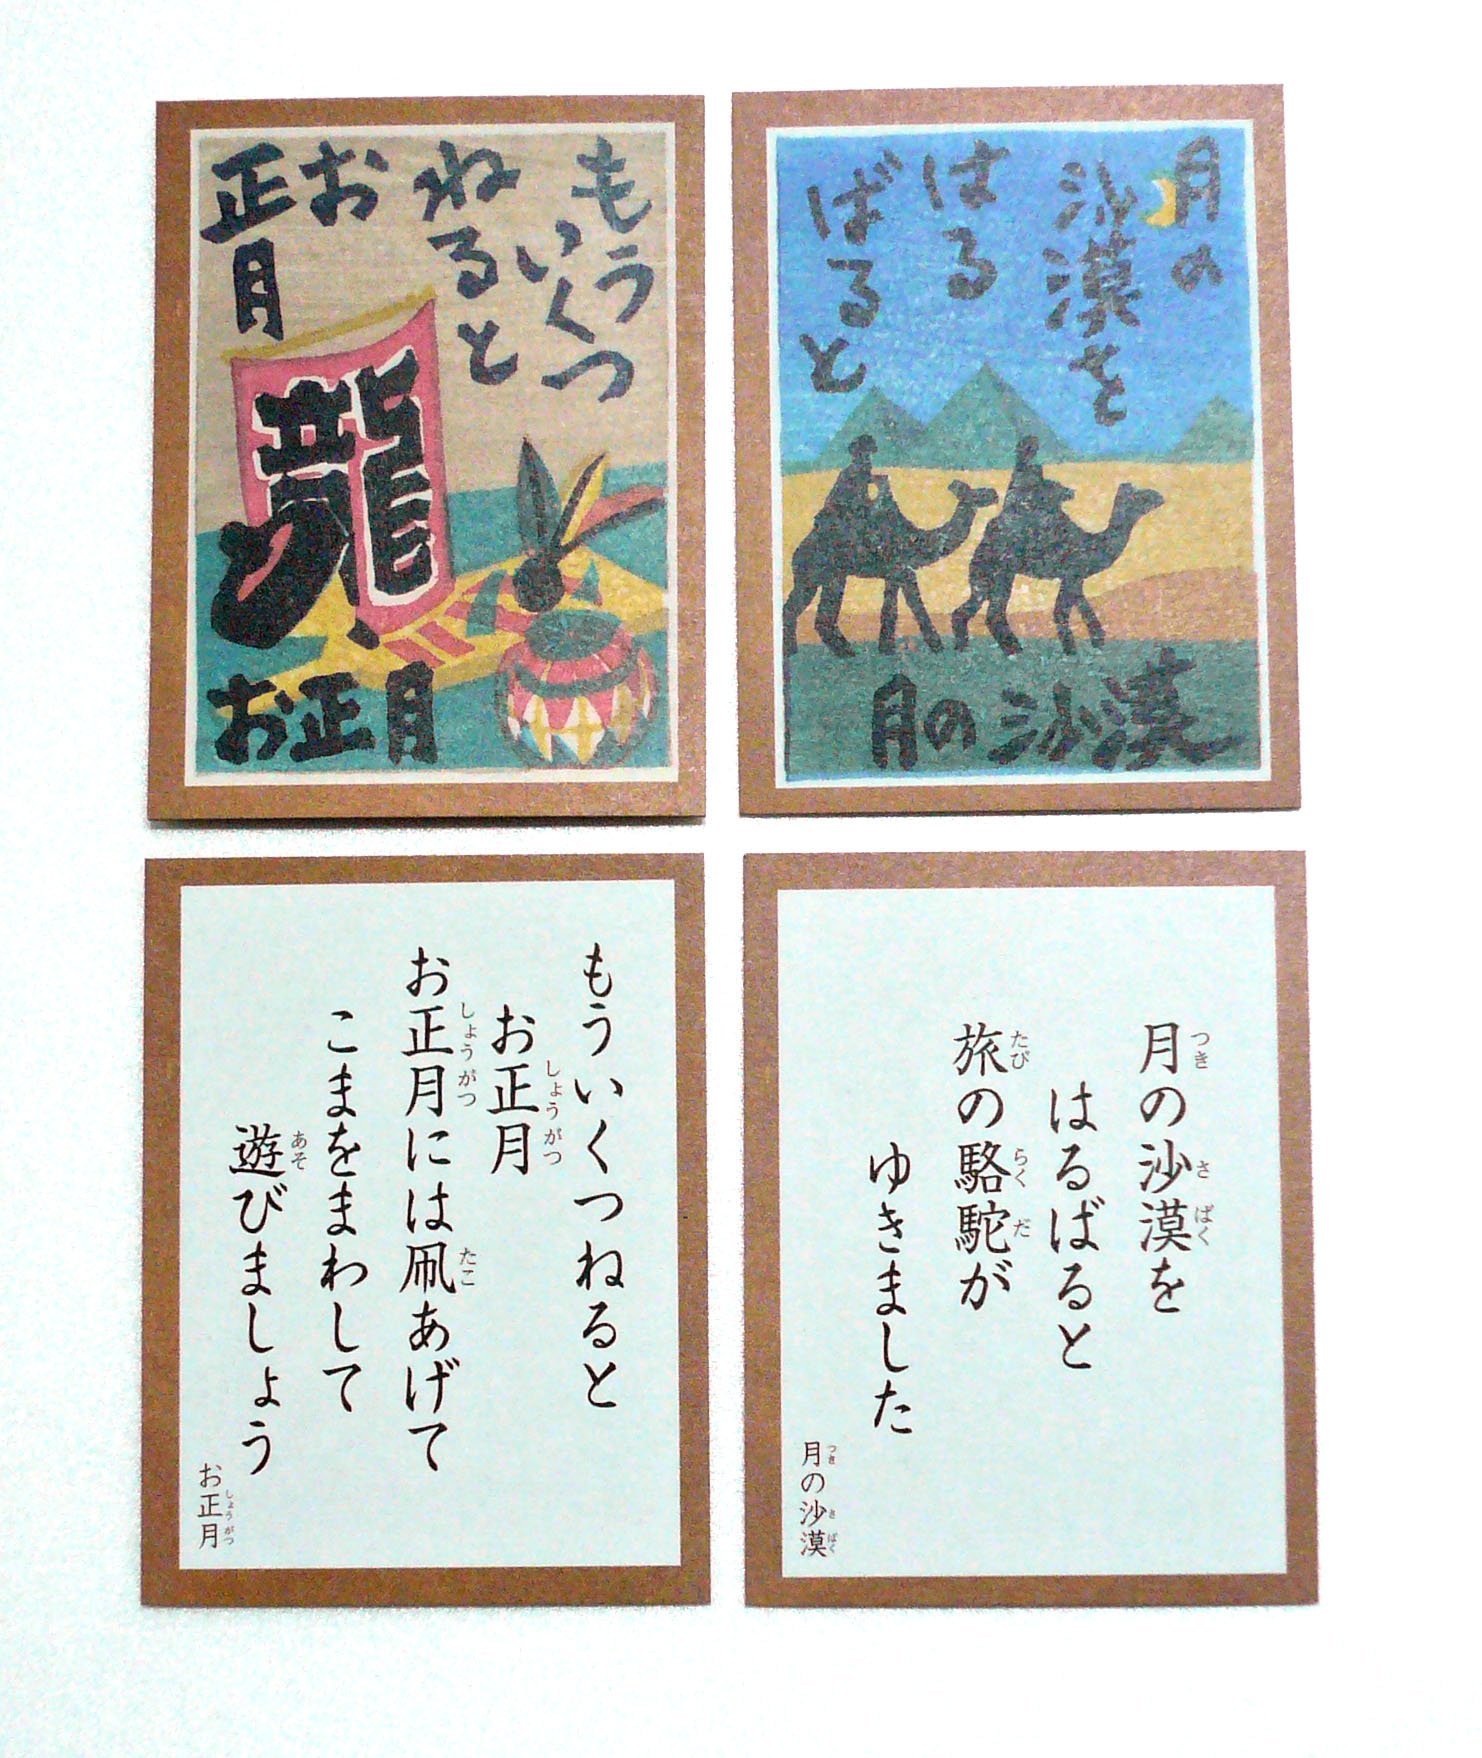 もう
いくつ
ねると
お
正月
龍
お正月
月の
沙漠を
はる
ばると
月の沙漠
もういくつねると
お正月
しょうがつ
お正月には凧あげて
しょうがつ たこ
こまをまわして
遊びましょう
あそ
お正月
しょうがつ
月の沙漠を
つき さばく
はるばると
旅の駱駝が
たび らくだ
ゆきました
月の沙漠
つき さばく